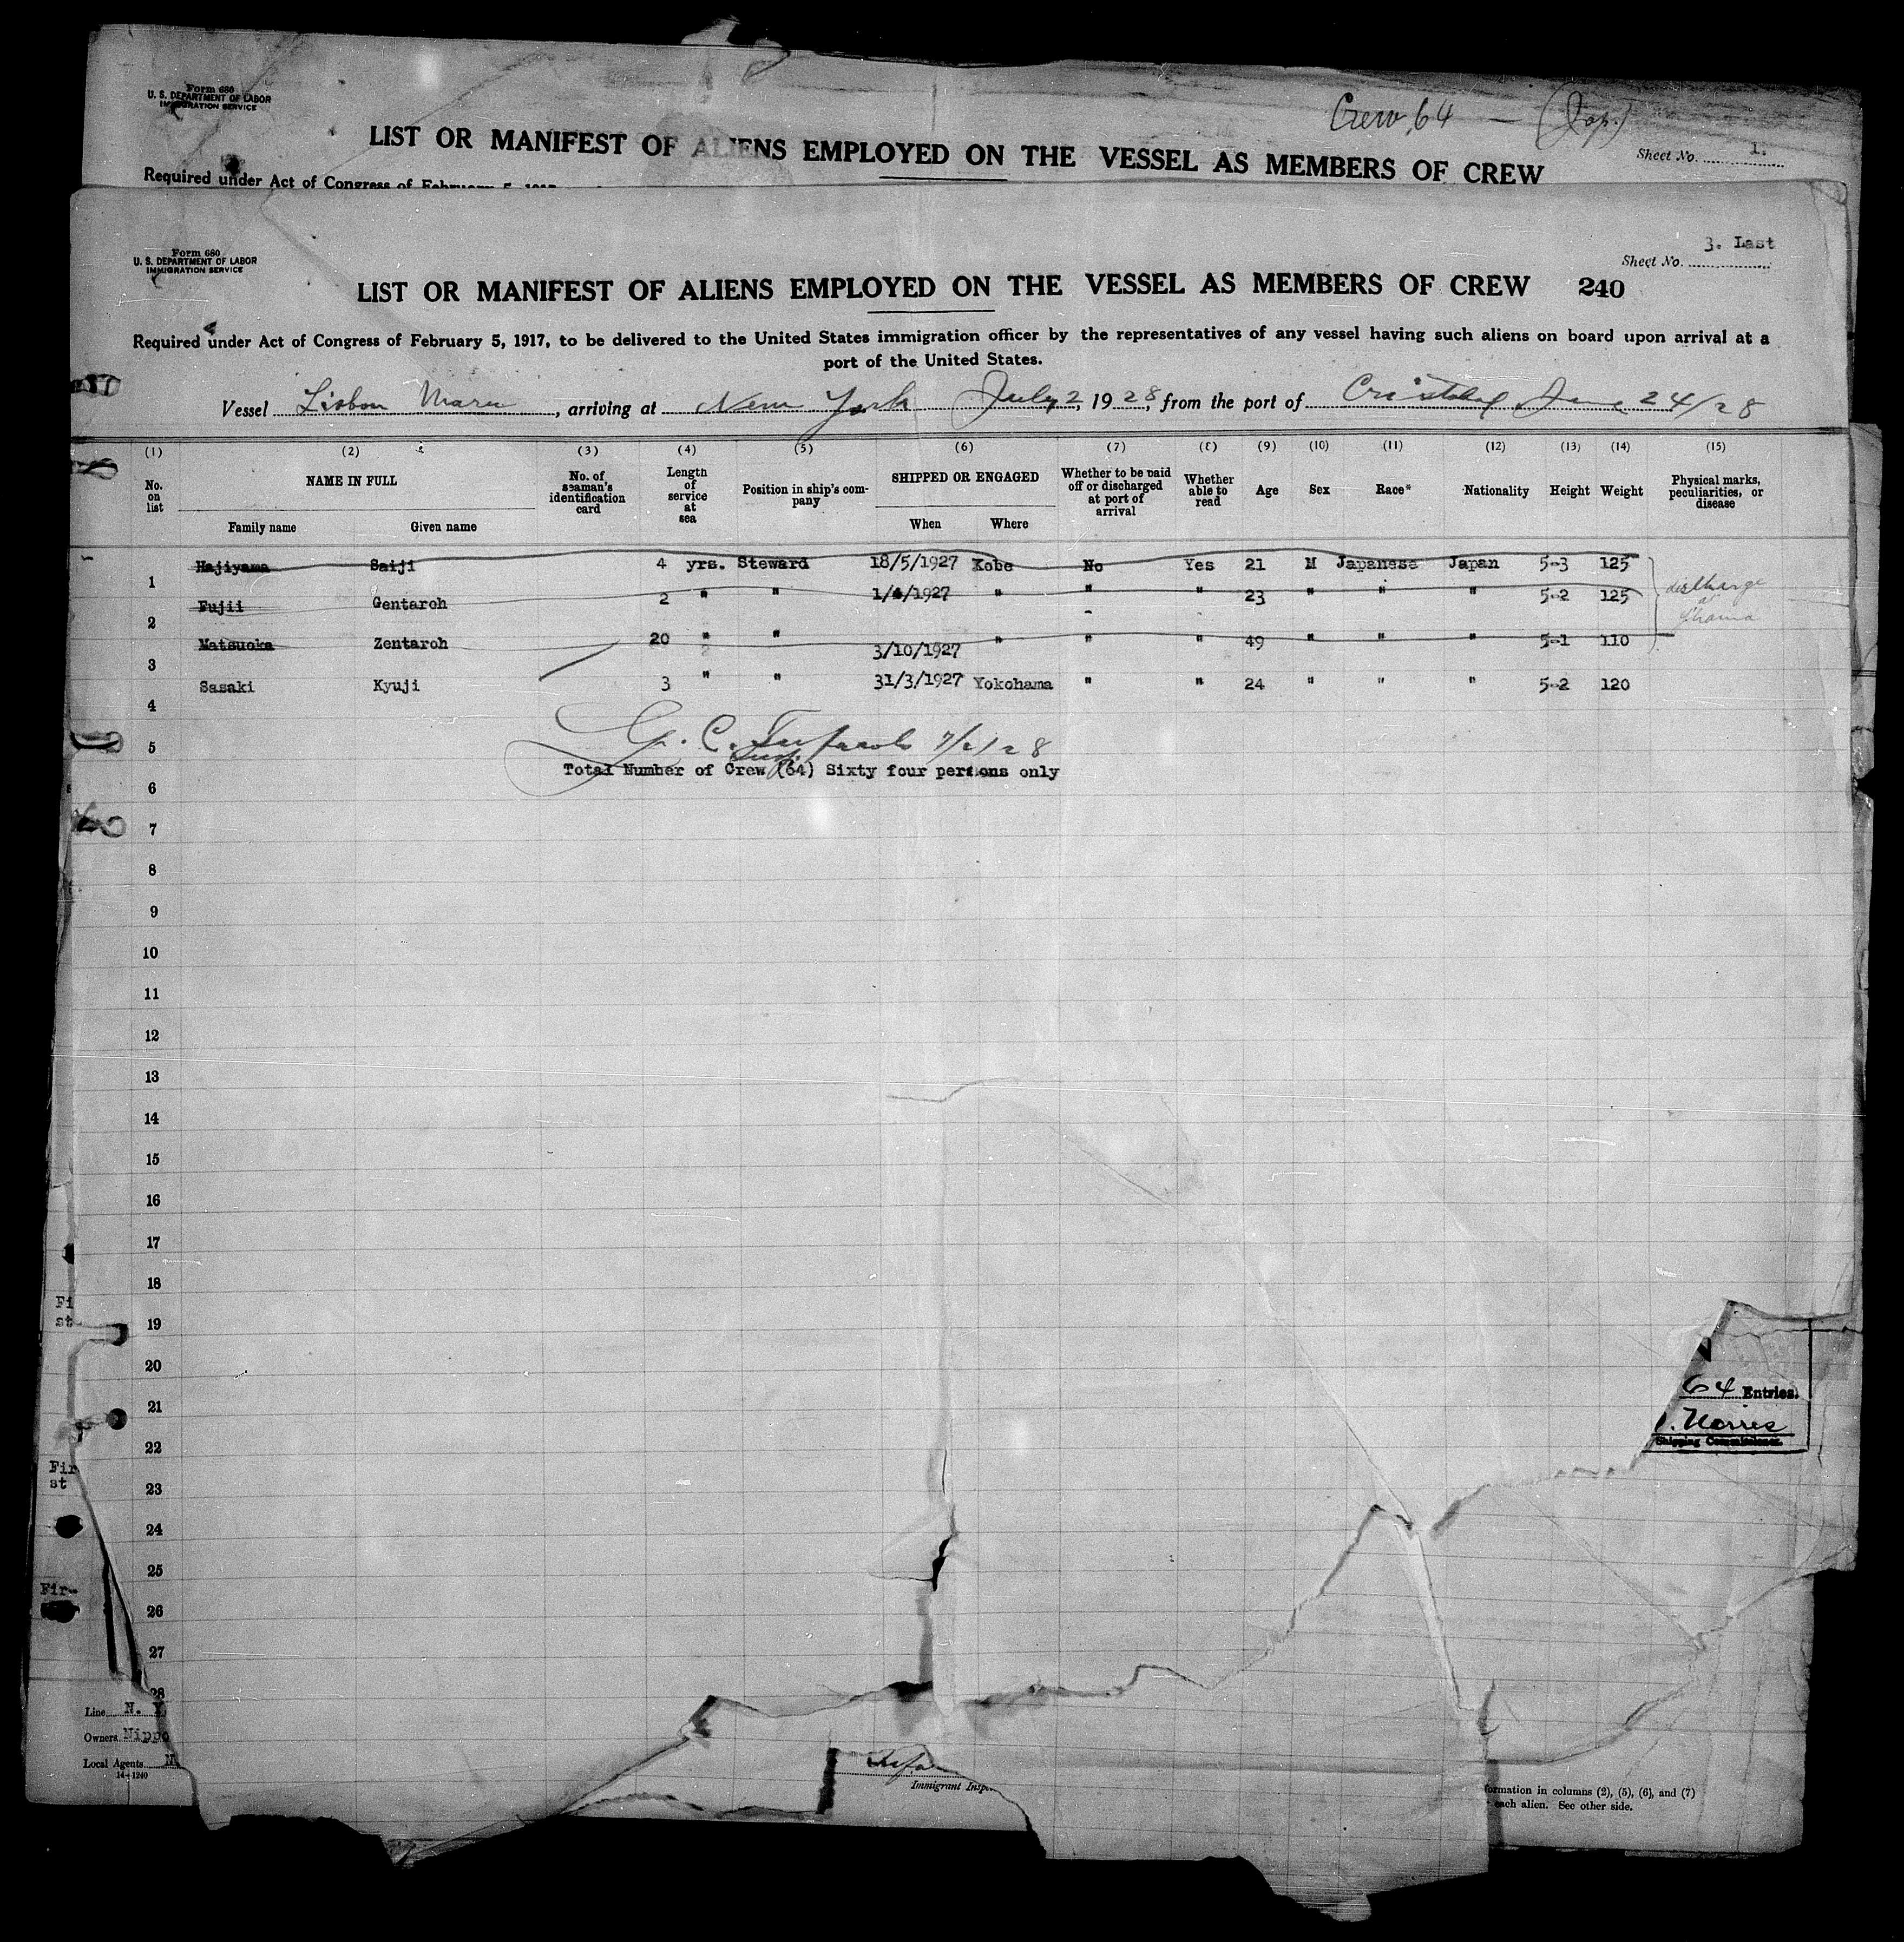 Form 680
U. S. DEPARTMENT OF LABOR
IMMIGRATION SERVICE
Crew 64 — (Jap.)
LIST OR MANIFEST OF ALIENS EMPLOYED ON THE VESSEL AS MEMBERS OF CREW
Sheet No. 1.
Required under Act of Congress of February 5, 1917
Form 680
U. S. DEPARTMENT OF LABOR
IMMIGRATION SERVICE
3. Last
Sheet No.
LIST OR MANIFEST OF ALIENS EMPLOYED ON THE VESSEL AS MEMBERS OF CREW 240
Required under Act of Congress of February 5, 1917, to be delivered to the United States immigration officer by the representatives of any vessel having such aliens on board upon arrival at a
port of the United States.
Vessel Lisbon Maru, arriving at New York July 2, 1928, from the port of Cristobal June 24/28
(1) (2) (3) (4) (5) (6) (7) (8) (9) (10) (11) (12) (13) (14) (15)
No. on list
NAME IN FULL
Family name Given name
No. of seaman's identification card
Length of service at sea
Position in ship's company
SHIPPED OR ENGAGED
When Where
Whether to be paid off or discharged at port of arrival
Whether able to read
Age
Sex
Race*
Nationality
Height
Weight
Physical marks, peculiarities, or disease
Hajiyama Saiji 4 yrs. Steward 18/5/1927 Kobe No Yes 21 M Japanese Japan 5-3 125
1 Fujii Gentaroh 2 " " 1/4/1927 " " " 23 " " " 5-2 125
discharge at
2 Matsuoka Zentaroh 20 " " 3/10/1927 " " " 49 " " " 5-1 110
3 Sasaki Kyuji 3 " " 31/3/1927 Yokohama " " 24 " " " 5-2 120
4
G. C. 7/2/28
5
Total Number of Crew (64) Sixty four persons only
6
7
8
9
10
11
12
13
14
15
16
17
18
Fi
st
19
20
64 Entries.
21
Norris
Shipping Commissioner.
22
Fir
st
23
24
25
Fir-
26
27
28
Line N. Y
Owners Nippo
Local Agents M
14-1240
Immigrant Insp
formation in columns (2), (5), (6), and (7)
each alien. See other side.